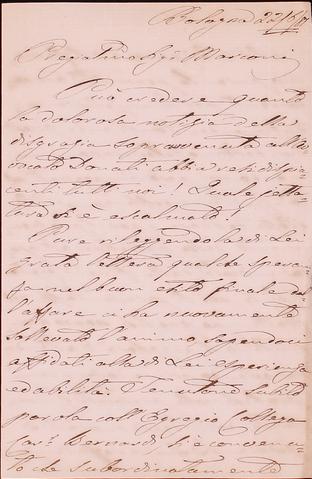 Bologna 22/6/
Pregiatmo Sigr Marconi
Può credere quanto
la dolorosa notizia della
disgrazia sopravvenuta all'Av
vocato Donati abbia
centi tutti noi! Quale jetta-
tura si è
Pure rileggendo la di Lei
grata lettera qualche speran-
za nel buon esito finale del
l'affare ci ha nuovamente
sollevato l'animo sapendoci
affidati alla di Lei esperienza
ed abilità. Tenutone
parola coll'Egregio Collega
Bernardi si è convenu-
to che subordinatamente